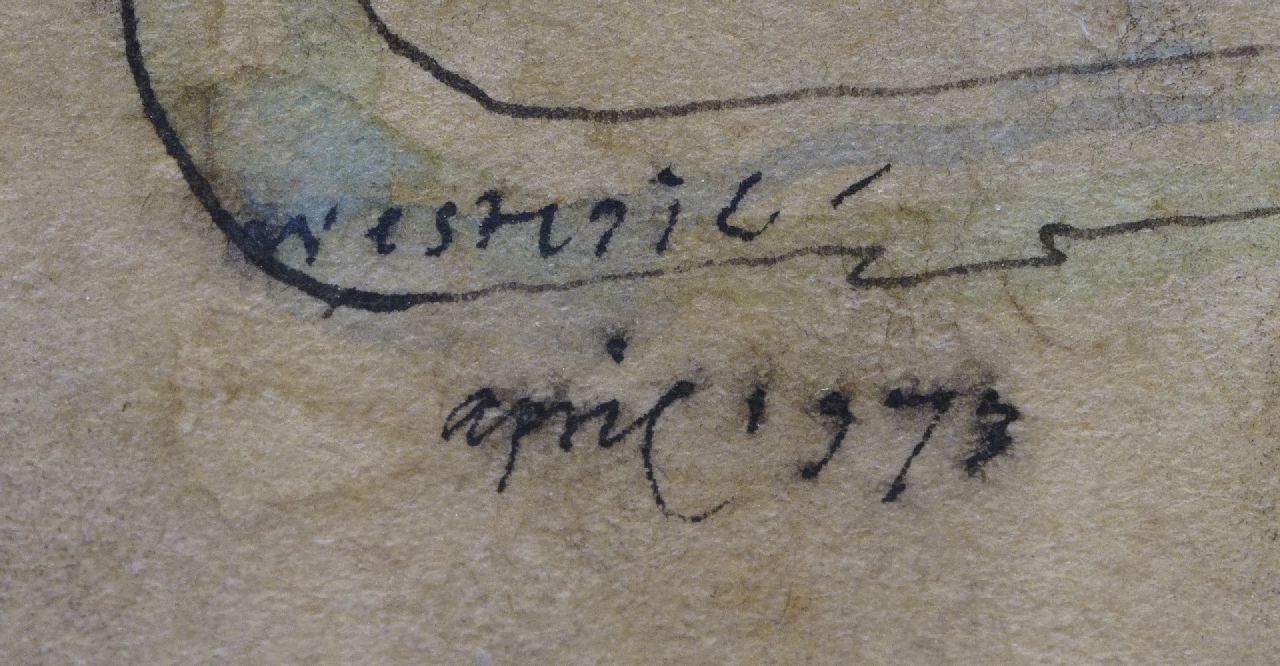 westerik
april 1973